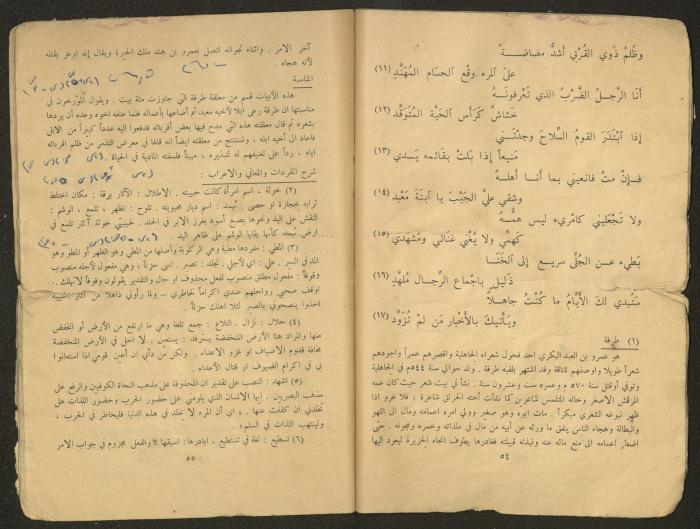 وظلمُ ذوي القُربى أشدُّ مضاضـةً
على المرء وقع الحسام المهنَّدِ (١١)
أنا الرجـلُ الضَّرْبُ الذي تَعرفونـهُ
خشاشٌ كرأس الحيّة المتوقِّدِ (١٢)
إذا ابتدَرَ القومُ السلاحَ وجدْتَـني
مَنيعاً إذا بَلّتْ بقائمه يَدي (١٣)
فـإنْ متُّ فانعيني بمـا أنـا أهلـهُ
وشقي عليَّ الجَيْبَ يا ابنةَ مَعْبدِ (١٤)
ولا تَجعليني كامرىءٍ ليس همُّـهُ
كهمِّي ولا يُغني غنائي ومَشهدي (١٥)
بطيءٍ عـن الجُلَّى سريـعٍ إلى الخَنـا
ذليلٍ بإجماع الرجـال مُلهَّدِ (١٦)
ستُبدي لكَ الأيّامُ ما كُنْتَ جاهـلاً
ويأتيكَ بالأخبارِ مَن لَمْ تُزوِّدِ (١٧)
(١) طرفة
هو عمرو بن العبد البكري احد فحول شعراء الجاهلية واقصرهم عمراً واجودهم
شعراً طويلاً واوصفهم للناقة وقد اشتهر بلقبه طرفة . ولد حوالي سنة ٥٤٤م في الجاهلية
وتوفي اوقتل سنة ٥٧٠ م وعمره ست وعشرون سنة . نشأ في بيت شعر حيث كان عمه
المرقش الاصغر وخاله المتلمس شاعرين كما نشأت أخته الخرنق شاعرة ، فلا غرو اذا
ظهر نبوغه الشعري مبكراً . مات ابوه وهو صغير وولي امره اعمامه ومال الى اللهو
والبطالة وهجاء الناس ينفق ما ورثه عن أبيه من مال في ملذاته وخمره ومجونه . حتى
اضطر اعمامه الى منع ماله عنه ونبذته قبيلته فغادرها يطوف انحاء الجزيرة ليعود اليها
٥٤
آخر الأمر . واثناء تجواله اتصل بعمرو بن هند ملك الحيرة ويقال إنه اوعز بقتله
لأنه هجاه .
المناسبة
هذه الأبيات قسم من معلقة طرفة التي جاوزت مئة بيت . ويقول المؤرخون في
مناسبتها ان طرفة رعى ابلاً لاخيه معبد ثم أضاعها بأعماله فلما عنفه اخوه وعده أن يردها
بشعره ثم قال معلقته هذه التي مدح فيها بعض أقربائه فدفعوا اليه عدداً كبيراً من الابل
فاعاد الى أخيه ابله ، ونستنتج من معلقته ايضاً انه قالها في معرض التذمر من ظلم اقربائه
اياه ، رداً على تعنيفهم له لتبذيره ، مبيناً فلسفته المادية في الحياة .
شرح المفردات والمعاني والاعراب :
(٢) خولة ، اسم امرأة كانت حبيبته . الاطلال : الآثار برقة : مكان اختلط
ترابه بحجارة او حصى . ثهمد : اسم ديار محبوبته . تلوح : تظهر ، تلمع ، الوشم :
النقش على اليد ونحوها بصبغ أسود بغرز الابر في الجلد . لحبيبتي خولة آثار تلمع في
ارض ثهمد كأنها بقايا الوشم على ظاهر اليد .
(٣) المطي : مفردها مطية وهي الركوبة وأصلها من المطي وهو الظهر أو المطو وهو
المد في السير . علي : اي لأجلي . تجلد : تصبر . اسى حزناً ، وهي مفعول لأجله منصوب
وقوفاً : مفعول مطلق منصوب لفعل محذوف او حال والتقدير يقولون وقوفاً لاتهلك ..
اوقف صحبي رواحلهم عندي اكراماً لخاطري — ولما رأوني ذاهلاً من آثار الحبيبة
اخذوا ينصحوني بالصبر لئلا اهلك حزناً .
(٤) حلال : نزال . التلاع : جمع تلعة وهي ما ارتفع من الأرض أو انخفض
منها والمراد هنا الأرض المنخفضة يسترفد : يستعين . لا احل في الأرض المنخفضة
مخافة قدوم الاضياف او غزو الاعداء . ولكن من دأبي ان أعين قومي اذا استعانوا
بي في اكرام الضيوف او قتال الأعداء .
(٥) اشهد : النصب على تقدير ان المحذوفة على مذهب النحاة الكوفيين والرفع على
مذهب البصريين . ايها الانسان الذي يلومني على حضور الحرب وحضور اللذات هل
تخلدني ان كففت عنها . ، اي أن المرء لا يخلد في هذه الدنيا فليخاطر في الحرب ،
ولينتهب اللذات في السلم .
(٦) تسطيع : لغة في تستطيع ، ابادرها: اسبقها والفعل مجزوم في جواب الامر
٥٥